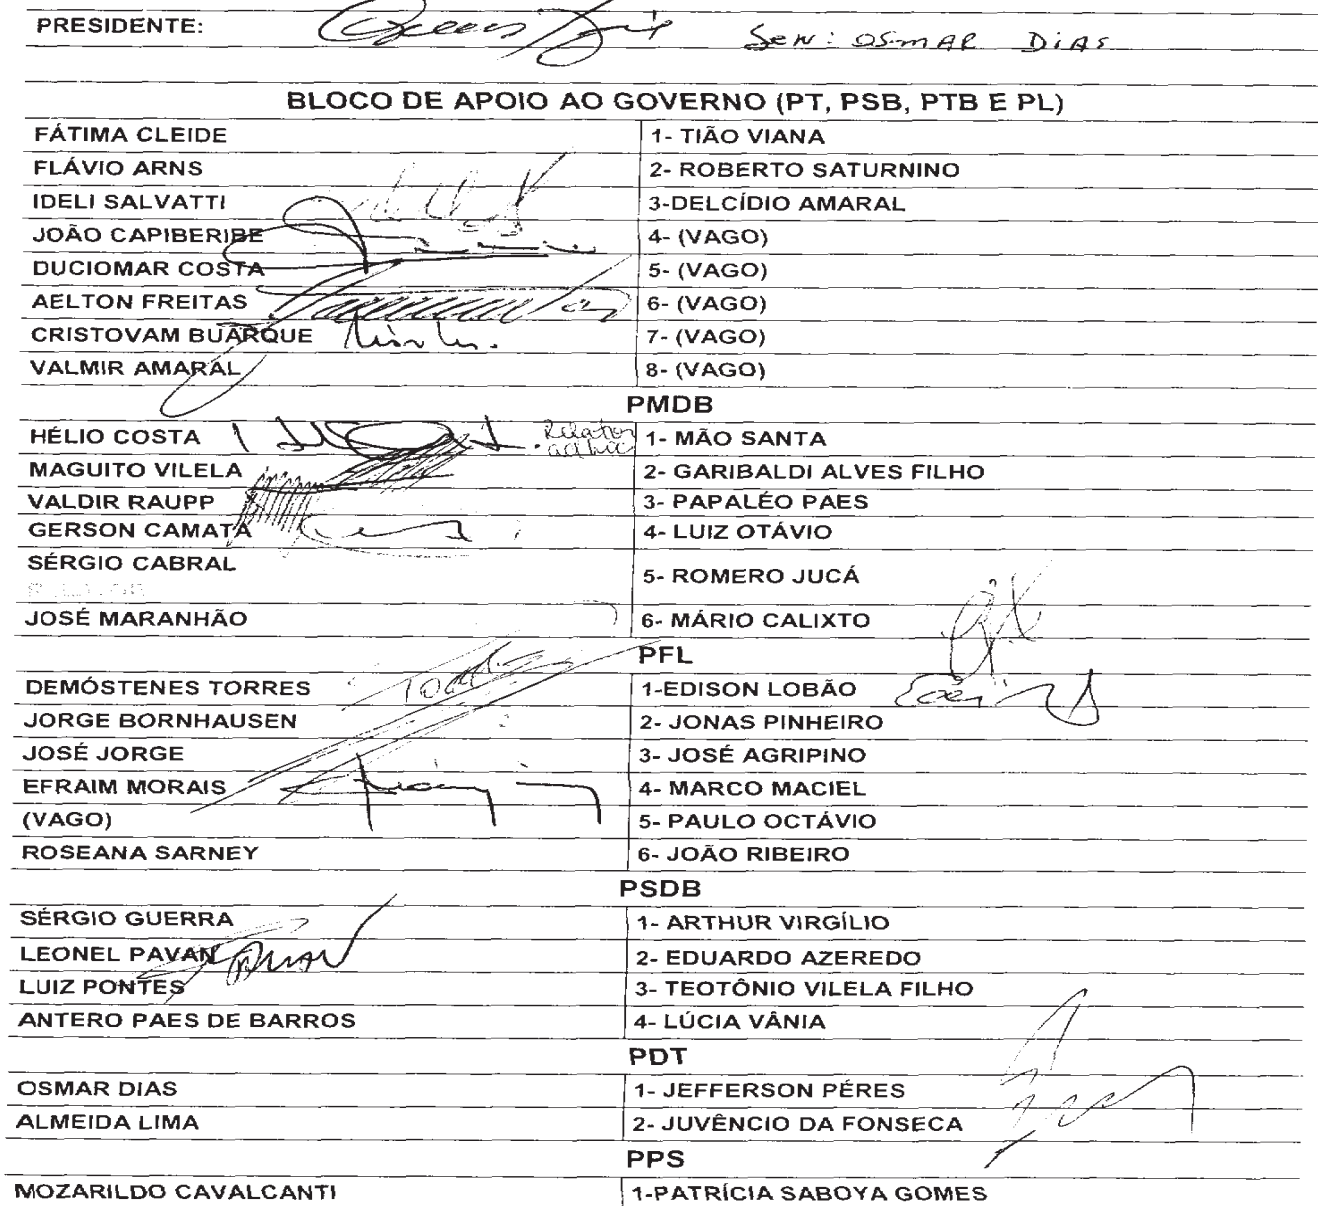 PRESIDENTE: Sen: OSMAR DIAS
BLOCO DE APOIO AO GOVERNO (PT, PSB, PTB E PL)
FÁTIMA CLEIDE 1- TIÃO VIANA
FLÁVIO ARNS 2- ROBERTO SATURNINO
IDELI SALVATTI 3-DELCÍDIO AMARAL
JOÃO CAPIBERIBE 4- (VAGO)
DUCIOMAR COSTA 5- (VAGO)
AELTON FREITAS 6- (VAGO)
CRISTOVAM BUARQUE 7- (VAGO)
VALMIR AMARAL 8- (VAGO)
PMDB
HÉLIO COSTA Relator ad hoc 1- MÃO SANTA
MAGUITO VILELA 2- GARIBALDI ALVES FILHO
VALDIR RAUPP 3- PAPALÉO PAES
GERSON CAMATA 4- LUIZ OTÁVIO
SÉRGIO CABRAL 5- ROMERO JUCÁ
JOSÉ MARANHÃO 6- MÁRIO CALIXTO
PFL
DEMÓSTENES TORRES 1-EDISON LOBÃO
JORGE BORNHAUSEN 2- JONAS PINHEIRO
JOSÉ JORGE 3- JOSÉ AGRIPINO
EFRAIM MORAIS 4- MARCO MACIEL
(VAGO) 5- PAULO OCTÁVIO
ROSEANA SARNEY 6- JOÃO RIBEIRO
PSDB
SÉRGIO GUERRA 1- ARTHUR VIRGÍLIO
LEONEL PAVAN 2- EDUARDO AZEREDO
LUIZ PONTES 3- TEOTÔNIO VILELA FILHO
ANTERO PAES DE BARROS 4- LÚCIA VÂNIA
PDT
OSMAR DIAS 1- JEFFERSON PÉRES
ALMEIDA LIMA 2- JUVÊNCIO DA FONSECA
PPS
MOZARILDO CAVALCANTI 1-PATRÍCIA SABOYA GOMES